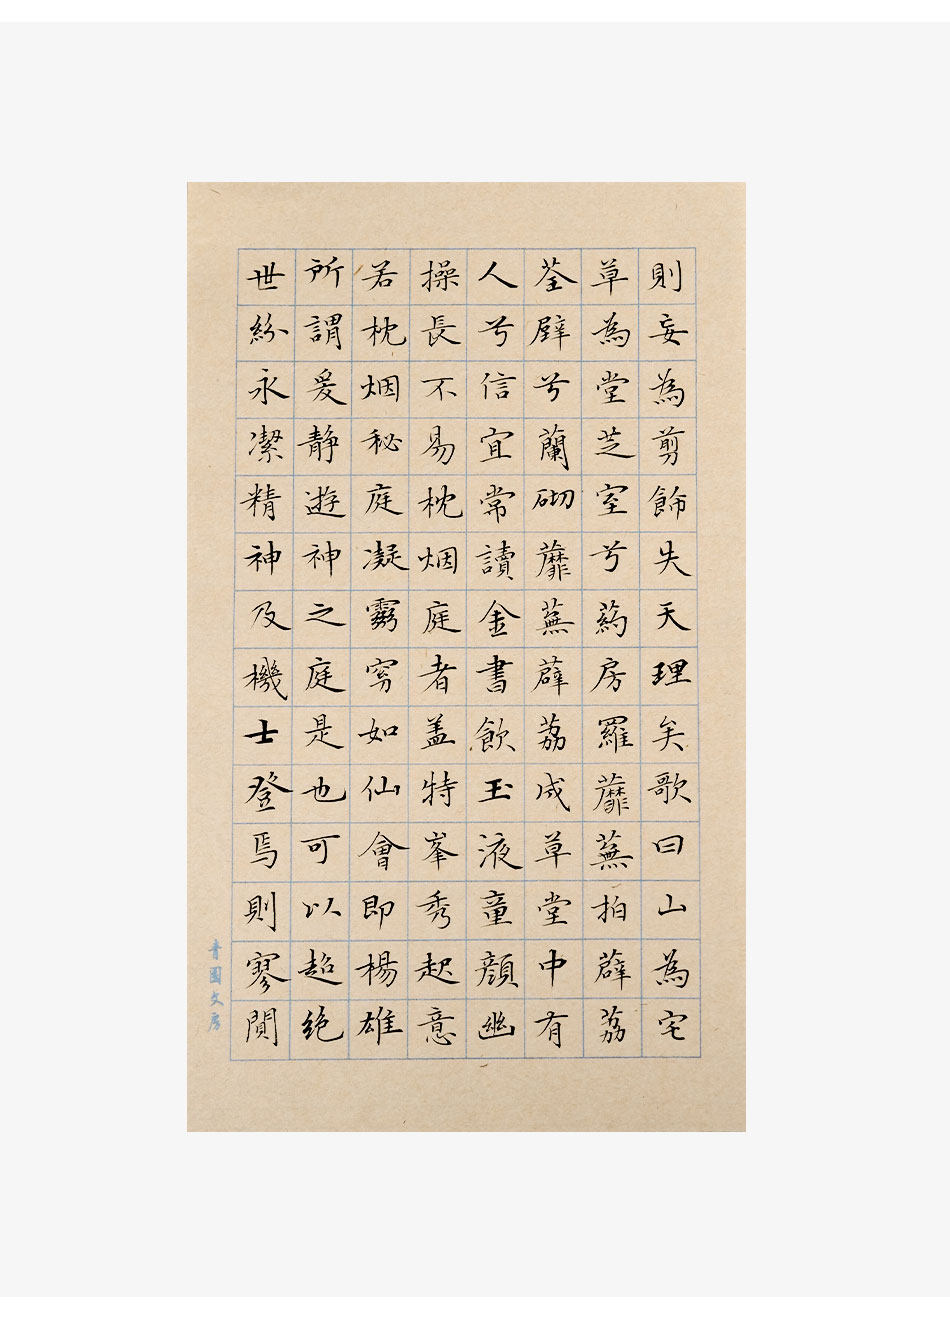 則妄為剪飾失天理矣歌曰山為宅
草為堂芝室兮葯房羅蘼蕪拍薜荔
荃壁兮蘭砌蘼蕪薜荔成草堂中有
人兮信宜常讀金書飲玉液童顔幽
操長不易枕烟庭者盖特峯秀起意
若枕烟秘庭凝霧窅如仙會即楊雄
所謂爰静遊神之庭是也可以超絶
世紛永潔精神及機士登焉則寥閴
青圃文房